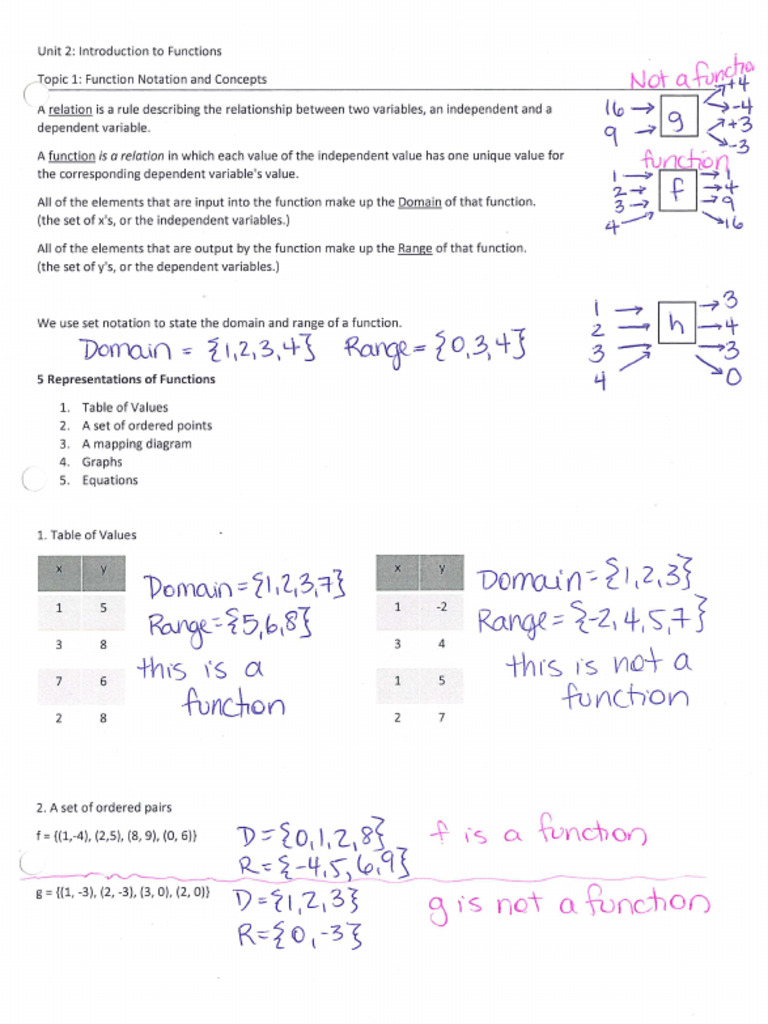 Unit 2: Introduction to Functions
Topic 1: Function Notation and Concepts
Not a functio
A relation is a rule describing the relationship between two variables, an independent and a
dependent variable.
16 → g → +4
→ -4
9 → → +3
→ -3
A function is a relation in which each value of the independent value has one unique value for
the corresponding dependent variable's value.
function
1 → f → 1
2 → → 4
3 → → 9
4 → → 16
All of the elements that are input into the function make up the Domain of that function.
(the set of x's, or the independent variables.)
All of the elements that are output by the function make up the Range of that function.
(the set of y's, or the dependent variables.)
1 → h → 3
2 → → 4
3 → → 3
4 → → 0
We use set notation to state the domain and range of a function.
Domain = {1,2,3,4} Range = {0,3,4}
5 Representations of Functions
1. Table of Values
2. A set of ordered points
3. A mapping diagram
4. Graphs
5. Equations
1. Table of Values
x y
1 5
3 8
7 6
2 8
Domain = {1,2,3,7}
Range = {5,6,8}
this is a
function
x y
1 -2
3 4
1 5
2 7
Domain = {1,2,3}
Range = {-2,4,5,7}
this is not a
function
2. A set of ordered pairs
f = {(1,-4), (2,5), (8, 9), (0, 6)}
D = {0,1,2,8}
R = {-4,5,6,9}
f is a function
g = {(1, -3), (2, -3), (3, 0), (2, 0)}
D = {1,2,3}
R = {0,-3}
g is not a function